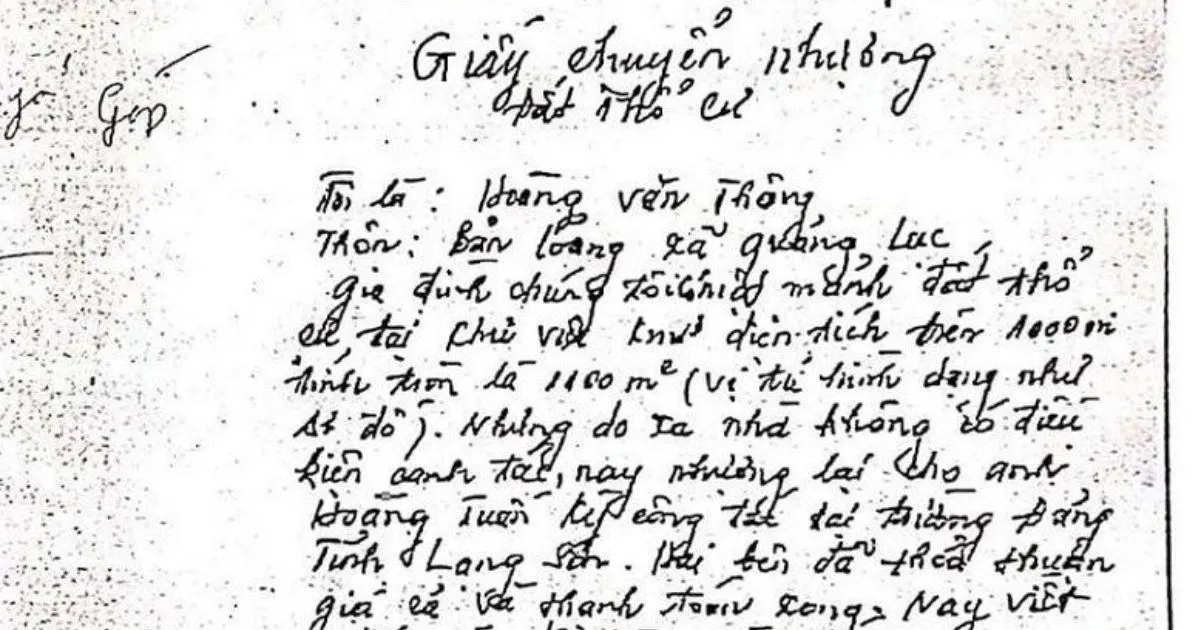 Giấy chuyển nhượng
Đất thổ cư
Góp
Tôi là: Hoàng Văn Thông
Thôn: Bản Loỏng xã Quảng Lạc
Gia đình chúng tôi có mảnh đất thổ
cư tại khu vực diện tích trên 1000 m
tính tròn là 1100 m² (vị trí hình dạng như
sơ đồ). Nhưng do xa nhà không có điều
kiện canh tác, nay nhường lại cho anh
Hoàng Tuấn Kỳ công tác tại trường Đảng
Tỉnh Lạng Sơn. Hai bên đã thoả thuận
giá cả và thanh toán xong. Nay viết